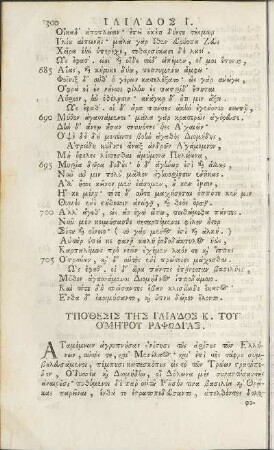 300 ΙΛΙΑΔΟΣ Ι.
Οἴκαδ᾽ ἀποπλείειν· ἐπεὶ οὐκέτι δήετε τέκμωρ
Ἰλίου αἰπεινῆς· μάλα γάρ ἑθεν εὐρύοπα Ζεὺς
Χεῖρα ἑὴν ὑπερέσχε, τεθαρσήκασι δὲ λαοί.
Ὣς ἔφατ᾽· εἰσὶ καὶ οἵδε τάδ᾽ εἰπέμεν, οἵ μοι ἕποντο,
685 Αἴας, καὶ κήρυκε δύω, πεπνυμένω ἄμφω·
Φοῖνιξ δ᾽ αὖθ᾽ ὁ γέρων κατελέξατο· ὣς γὰρ ἀνώγει,
Ὄφρα οἱ ἐν νήεσσι φίλην ἐς πατρίδ᾽ ἕπηται
Αὔριον, ἢν ἐθέλῃσιν· ἀνάγκῃ δ᾽ οὔτι μιν ἄξει.
Ὣς ἔφαθ᾽. οἱ δ᾽ ἄρα πάντες ἀκὴν ἐγένοντο σιωπῇ,
690 Μῦθον ἀγασσάμενοι· μάλα γὰρ κρατερῶς ἀγόρευσε.
Δὴν δ᾽ ἄνεῳ ἦσαν τετιηότες υἷες Ἀχαιῶν·
Ὀψὲ δὲ δὴ μετέειπε βοὴν ἀγαθὸς Διομήδης·
Ἀτρείδη κύδιστε ἄναξ ἀνδρῶν Ἀγάμεμνον,
Μὴ ὄφελες λίσσεσθαι ἀμύμονα Πηλείωνα,
695 Μυρία δῶρα διδούς· ὁ δ᾽ ἀγήνωρ ἐστὶ καὶ ἄλλως·
Νῦν αὖ μιν πολὺ μᾶλλον ἀγηνορίῃσιν ἐνῆκας.
Ἀλλ᾽ ἤτοι κεῖνον μὲν ἐάσομεν, ἤ κεν ἴῃσιν,
Ἤ κε μένῃ· τότε δ᾽ αὖτε μαχήσεται ὁππότε κέν μιν
Θυμὸς ἐνὶ στήθεσσιν ἀνώγῃ, καὶ θεὸς ὄρσῃ.
700 Ἀλλ᾽ ἄγεθ᾽, ὡς ἂν ἐγὼ εἴπω, πειθώμεθα πάντες·
Νῦν μὲν κοιμήσασθε τεταρπόμενοι φίλον ἦτορ
Σίτου καὶ οἴνοιο· (τὸ γὰρ μένος ἐστὶ καὶ ἀλκή.)
Αὐτὰρ ἐπεί κε φανῇ καλὴ ῥοδοδάκτυλος ἠὼς,
Καρπαλίμως πρὸ νεῶν ἐχέμεν λαόν τε καὶ ἵππους
705 Ὀτρύνων, καὶ δ᾽ αὐτὸς ἐνὶ πρώτοισι μάχεσθαι.
Ὣς ἔφαθ᾽. οἱ δ᾽ ἄρα πάντες ἐπῄνησαν βασιλῆες,
Μῦθον ἀγασσάμενοι Διομήδεος ἱπποδάμοιο.
Καὶ τότε δὴ σπείσαντες ἔβαν κλισίηνδε ἕκαστος·
Ἔνθα δ᾽ ἐκοιμήσαντο, καὶ ὕπνου δῶρον ἕλοντο.
ΥΠΟΘΕΣΙΣ ΤΗΣ ΙΛΙΑΔΟΣ Κ. ΤΟΥ
ΟΜΗΡΟΥ ΡΑΨΩΔΙΑΣ.
Ἀγαμέμνων ἀγρυπνήσας ἀνίστησι τοὺς ἀρίστους τῶν Ἑλλή-
νων, αὐτός τε, καὶ Μενέλαος·